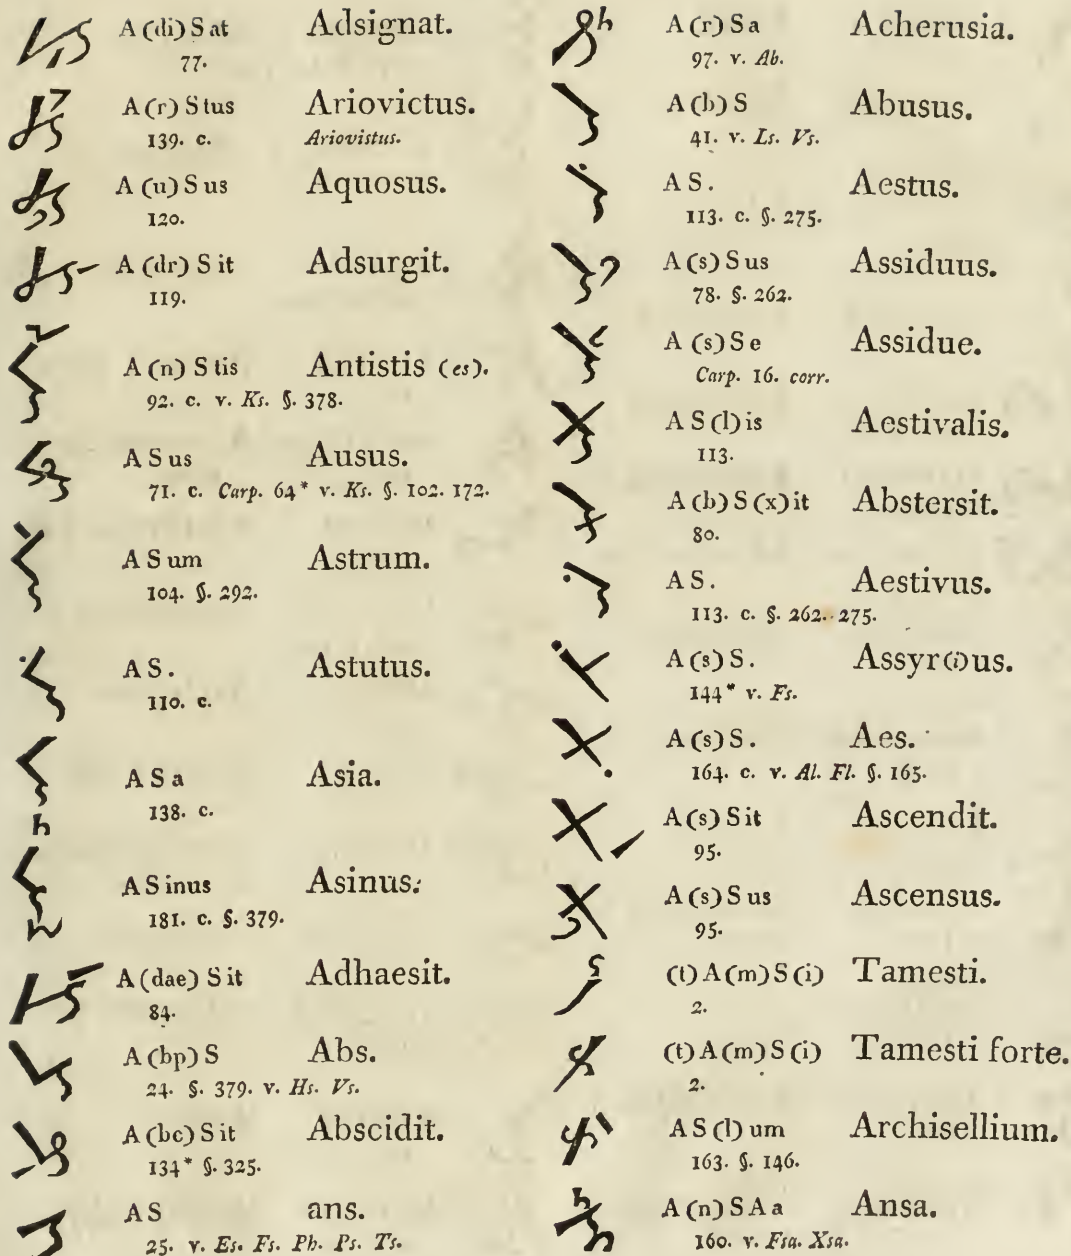 A (di) S at Adsignat.
77.
A (r) S tus Ariovictus.
139. c. Ariovistus.
A (u) S us Aquosus.
120.
A (dr) S it Adsurgit.
119.
A (n) S tis Antistis (es).
92. c. v. Ks. §. 378.
A S us Ausus.
71. c. Carp. 64* v. Ks. §. 102. 172.
A S um Astrum.
104. §. 292.
A S. Astutus.
110. c.
A S a Asia.
138. c.
A S inus Asinus.
181. c. §. 379.
A (dae) S it Adhaesit.
84.
A (bp) S Abs.
24. §. 379. v. Hs. Vs.
A (bc) S it Abscidit.
134* §. 325.
A S ans.
25. v. Es. Fs. Ph. Ps. Ts.
A (r) S a Acherusia.
97. v. Ab.
A (b) S Abusus.
41. v. Ls. Vs.
A S. Aestus.
113. c. §. 275.
A (s) S us Assiduus.
78. §. 262.
A (s) S e Assidue.
Carp. 16. corr.
A S (l) is Aestivalis.
113.
A (b) S (x) it Abstersit.
80.
A S. Aestivus.
113. c. §. 262. 275.
A (s) S. Assyr(i)us.
144* v. Fs.
A (s) S. Aes.
164. c. v. Al. Fl. §. 165.
A (s) S it Ascendit.
95.
A (s) S us Ascensus.
95.
(t) A (m) S (i) Tamesti.
2.
(t) A (m) S (i) Tamesti forte.
2.
A S (l) um Archisellium.
163. §. 146.
A (n) S A a Ansa.
160. v. Fsa. Xsa.